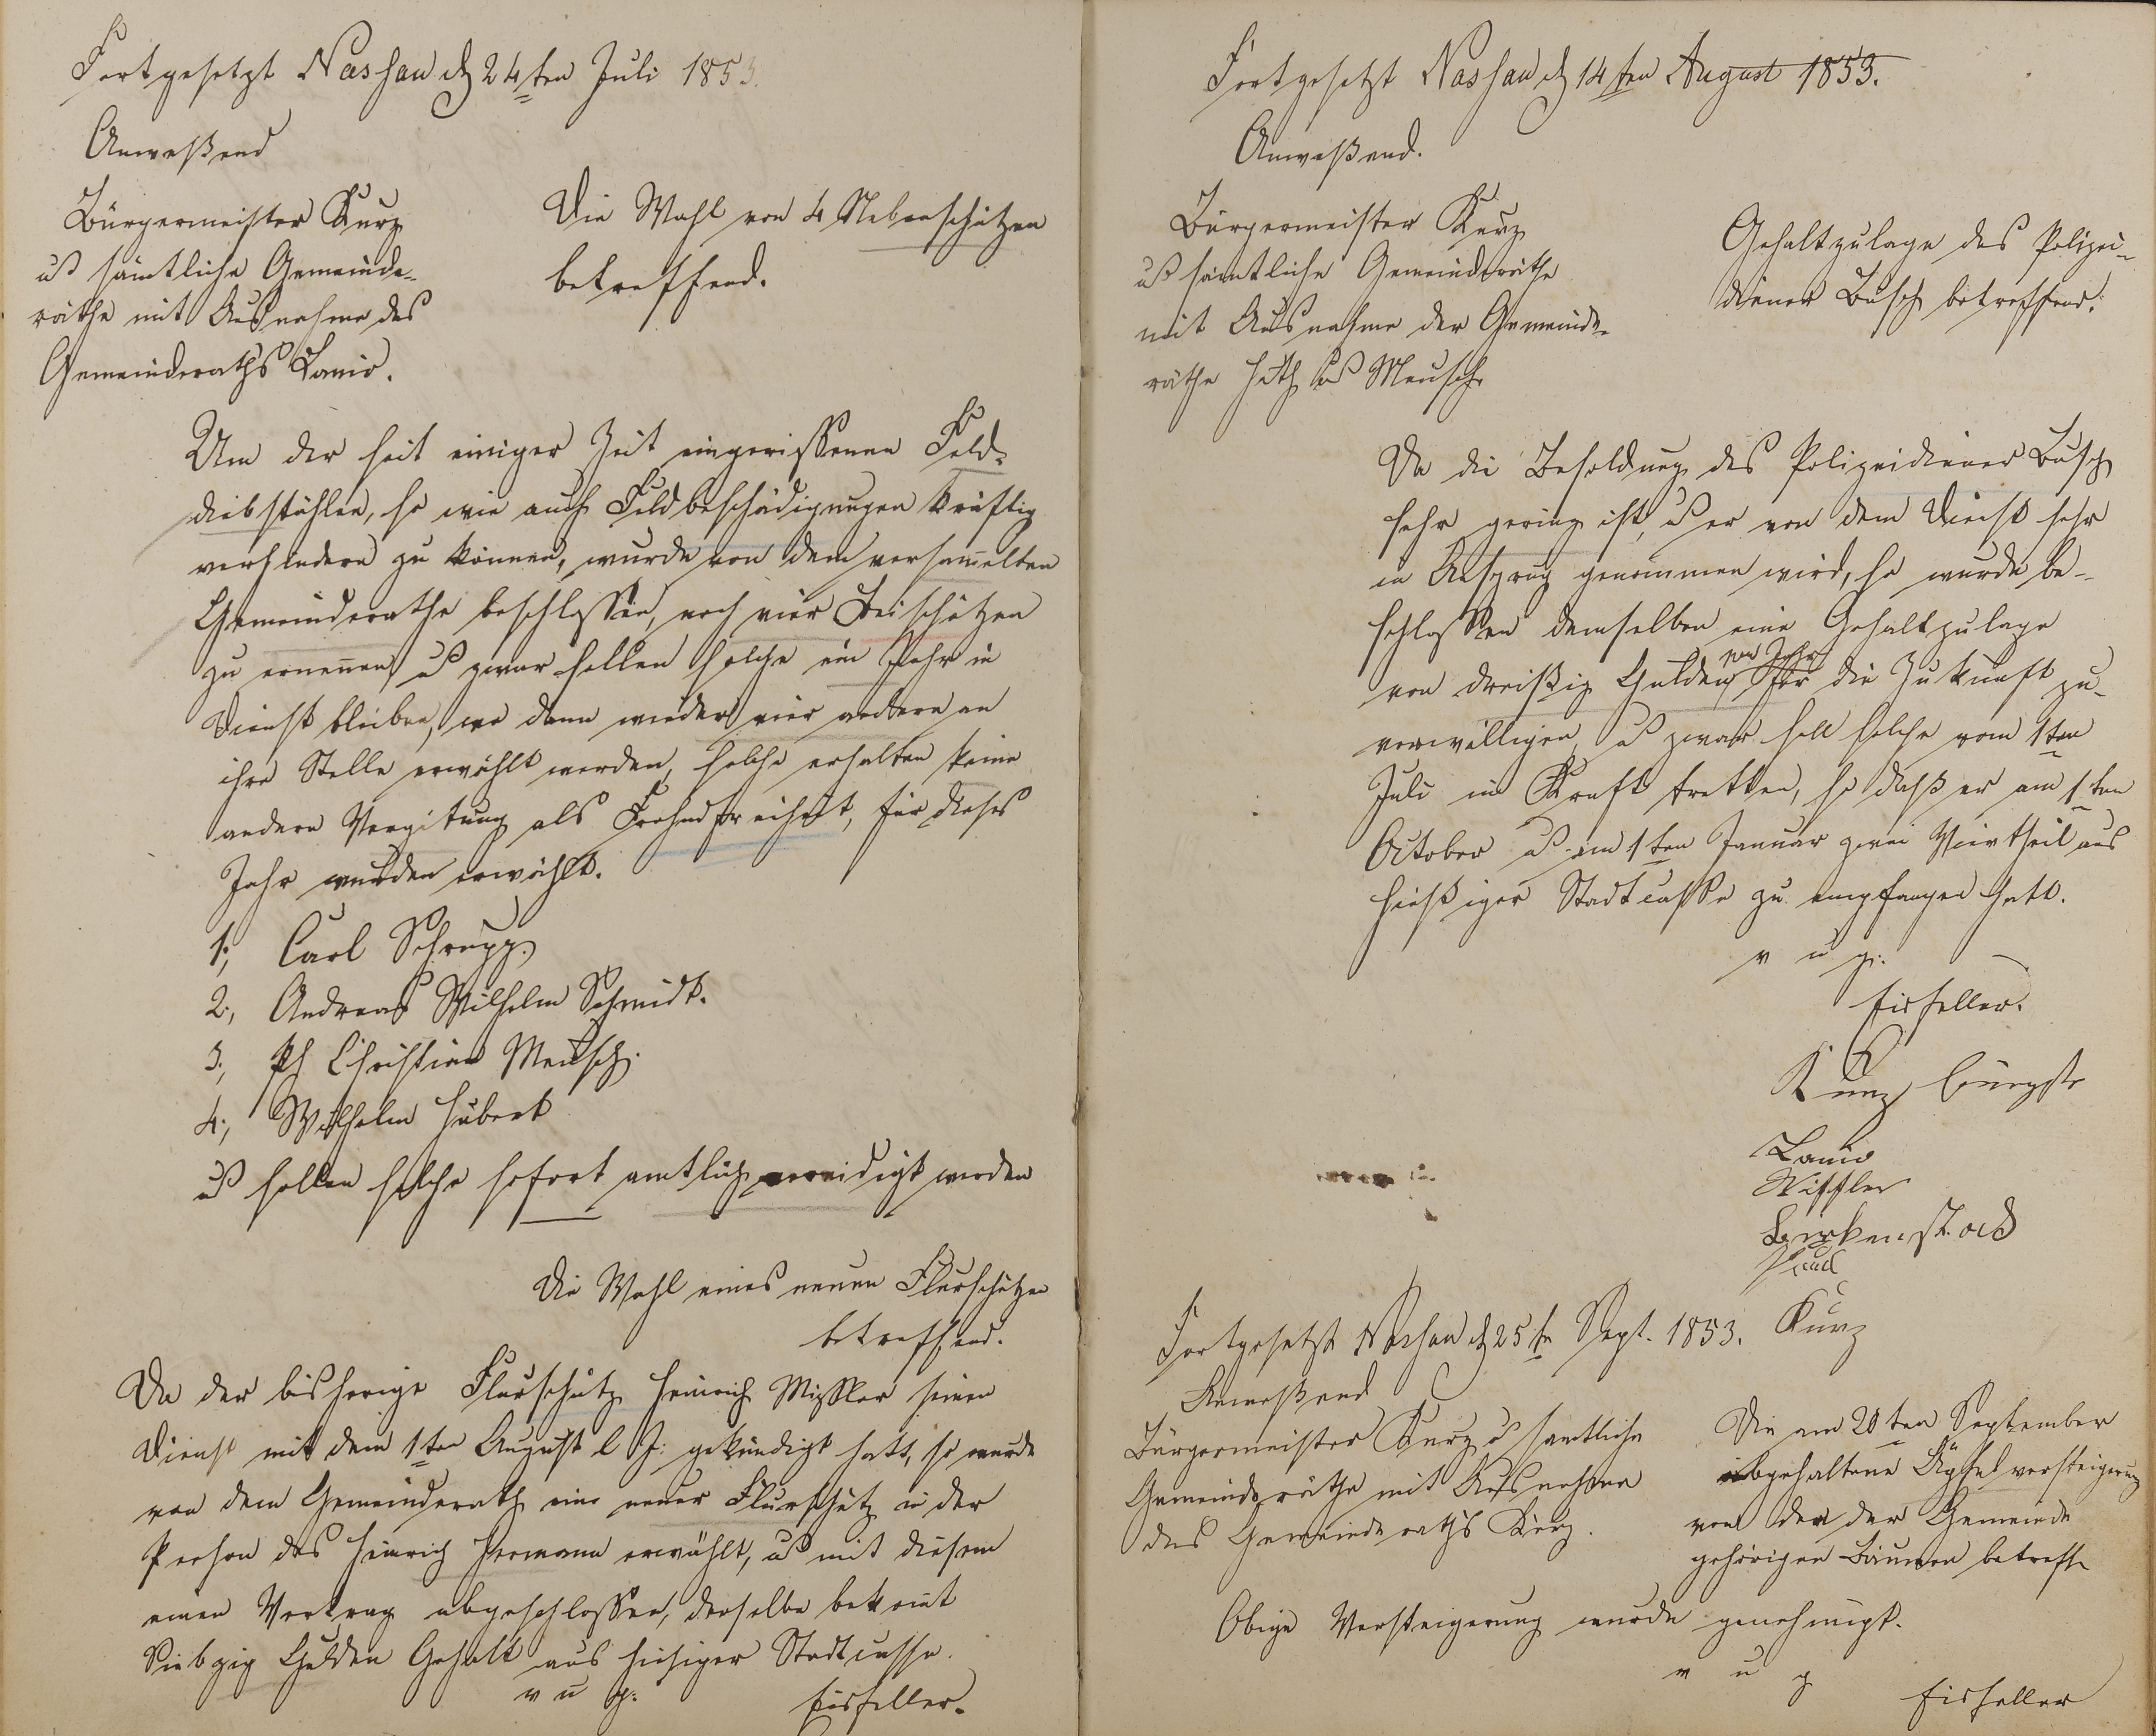 Fortgesetzt Nassau d 24ten Juli 1853.
Anweßend
Bürgermeister Kurz
u sämtliche Gemeinde-
räthe mit Ausnahme des
Gemeinderaths Lanio.
Die Wahl von 4 Nebenschützen
betreffend.
Um der seit einiger Zeit eingerissenen Feld-
diebstählen, so wie auch Feldbeschädigungen kräftig
verhindern zu können, wurde von dem versam̅elten
Gemeinderathe beschlossen, noch vier Beischützen
zu ernen̅en, u zwar sollen solche ein Jahr in
Dienst bleiben, wo dann wieder vier andere an
ihre Stelle erwählt werden, solche erhalten keine
andere Vergitung als Frohndfreiheit, für dieses
Jahr wurden erwählt.
1., Carl Schrupp.
2., Andreas Wilhelm Schmidt.
3., Ph Christian Meusch.
4., Wilhelm Hubert
u sollen solche sofort amtlich vereidigt werden
Die Wahl eines neuen Flurschützen
betreffend.
Da der bisherige Flurschütz Heinrich Missler seinen
Dienst mit dem 1ten August l. J. gekündigt hatt, so wurde
von dem Gemeinderath ein neuer Flurschütz in der
Person des Heinrich Hermann erwählt, u mit diesem
einen Vertrag abgeschlossen, derselbe bekomt
Siebzig Gulden Gehalt aus hiesiger Stadtcasse.
v u g.
Eisfeller.
Fortgesetzt Nassau d 14ten August 1853.
Anweßend.
Bürgermeister Kurz
u sämtliche Gemeinderäthe
mit Ausnahme der Gemeinde-
räthe Huth u Meusch
Gehaltzulage des Polizei-
diener Busch betreffend.
Da die Besoldung des Polizeidiener Busch
sehr gering ist, u er von dem Dienst sehr
in Anspruch genommen wird, so wurde be-
schlossen demselben eine Gehaltzulage
von dreißig Gulden pro Jahr für die Zukunft zu
verwilligen, u zwar soll solche vom 1ten
Juli in Kraft tretten, so daß er am 1ten
October u am 1ten Januar zwei Viertheil aus
hießiger Stadtcasse zu empfangen hatt.
v u g.
Eisfeller.
Kurz Burgstr
Lanio
Missler
Birkenstock
Paul
Kurz
Fortgesetzt Nassau d 25te Sept. 1853.
Anweßend
Bürgermeister Kurz u samtliche
Gemeinderäthe mit Ausnahme
des Gemeinderaths Kurz.
Die am 20ten September
abgehaltene Äpfelversteigerung
von den der Gemeinde
gehörigen Bäumen betreff
Obige Versteigerung wurde genehmigt.
v u g
Eisfeller